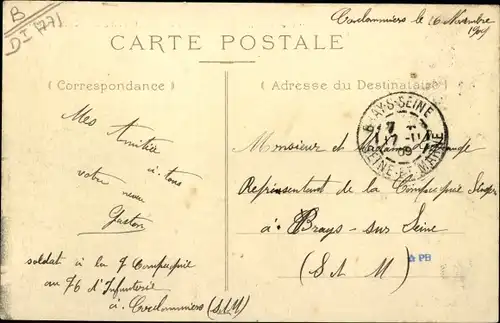 B
DI (77)
Coulommiers le 16 Novembre
1909
CARTE POSTALE
( Correspondance )
( Adresse du Destinataire )
Mes
Amitiés
à tous
votre neveu
Gaston
soldat à la 7 Compagnie
au 76 d'Infanterie
à Coulommiers (S&M)
BRAY-S-SEINE
17 -11
09
SEINE-ET-MARNE
Monsieur et Madame
Représentant de la Compagnie
à Brays-sur Seine
(S & M)
PB